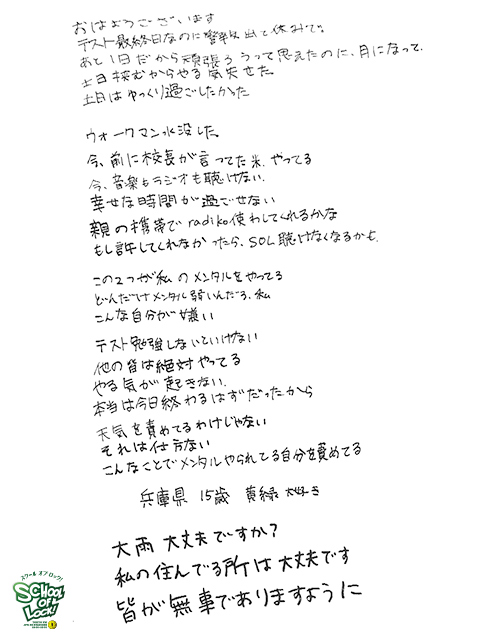 おはようございます
テスト最終日なのに警報出て休みで。
あと1日だから頑張ろうって思えたのに、月になって、
土日挟むからやる気失せた。
土日はゆっくり過ごしたかった
ウォークマン水没した。
今、前に校長が言ってた米やってる
今、音楽もラジオも聴けない.
幸せな時間が過ごせない
親の携帯でradiko使わしてくれるかな
もし許してくれなかったら、SOL聴けなくなるかも.
この2つが私のメンタルをやってる
どんだけメンタル弱いんだろ、私
こんな自分が嫌い
テスト勉強しないといけない
他の皆は絶対やってる
やる気が起きない.
本当は今日終わるはずだったから
天気を責めてるわけじゃない
それは仕方ない
こんなことでメンタルやられてる自分を責めてる
兵庫県 15歳 黄緑大好き
大雨大丈夫ですか?
私の住んでる所は大丈夫です
皆が無事でありますように
スクール オブ ロック!
SCHOOL
OF
LOCK!